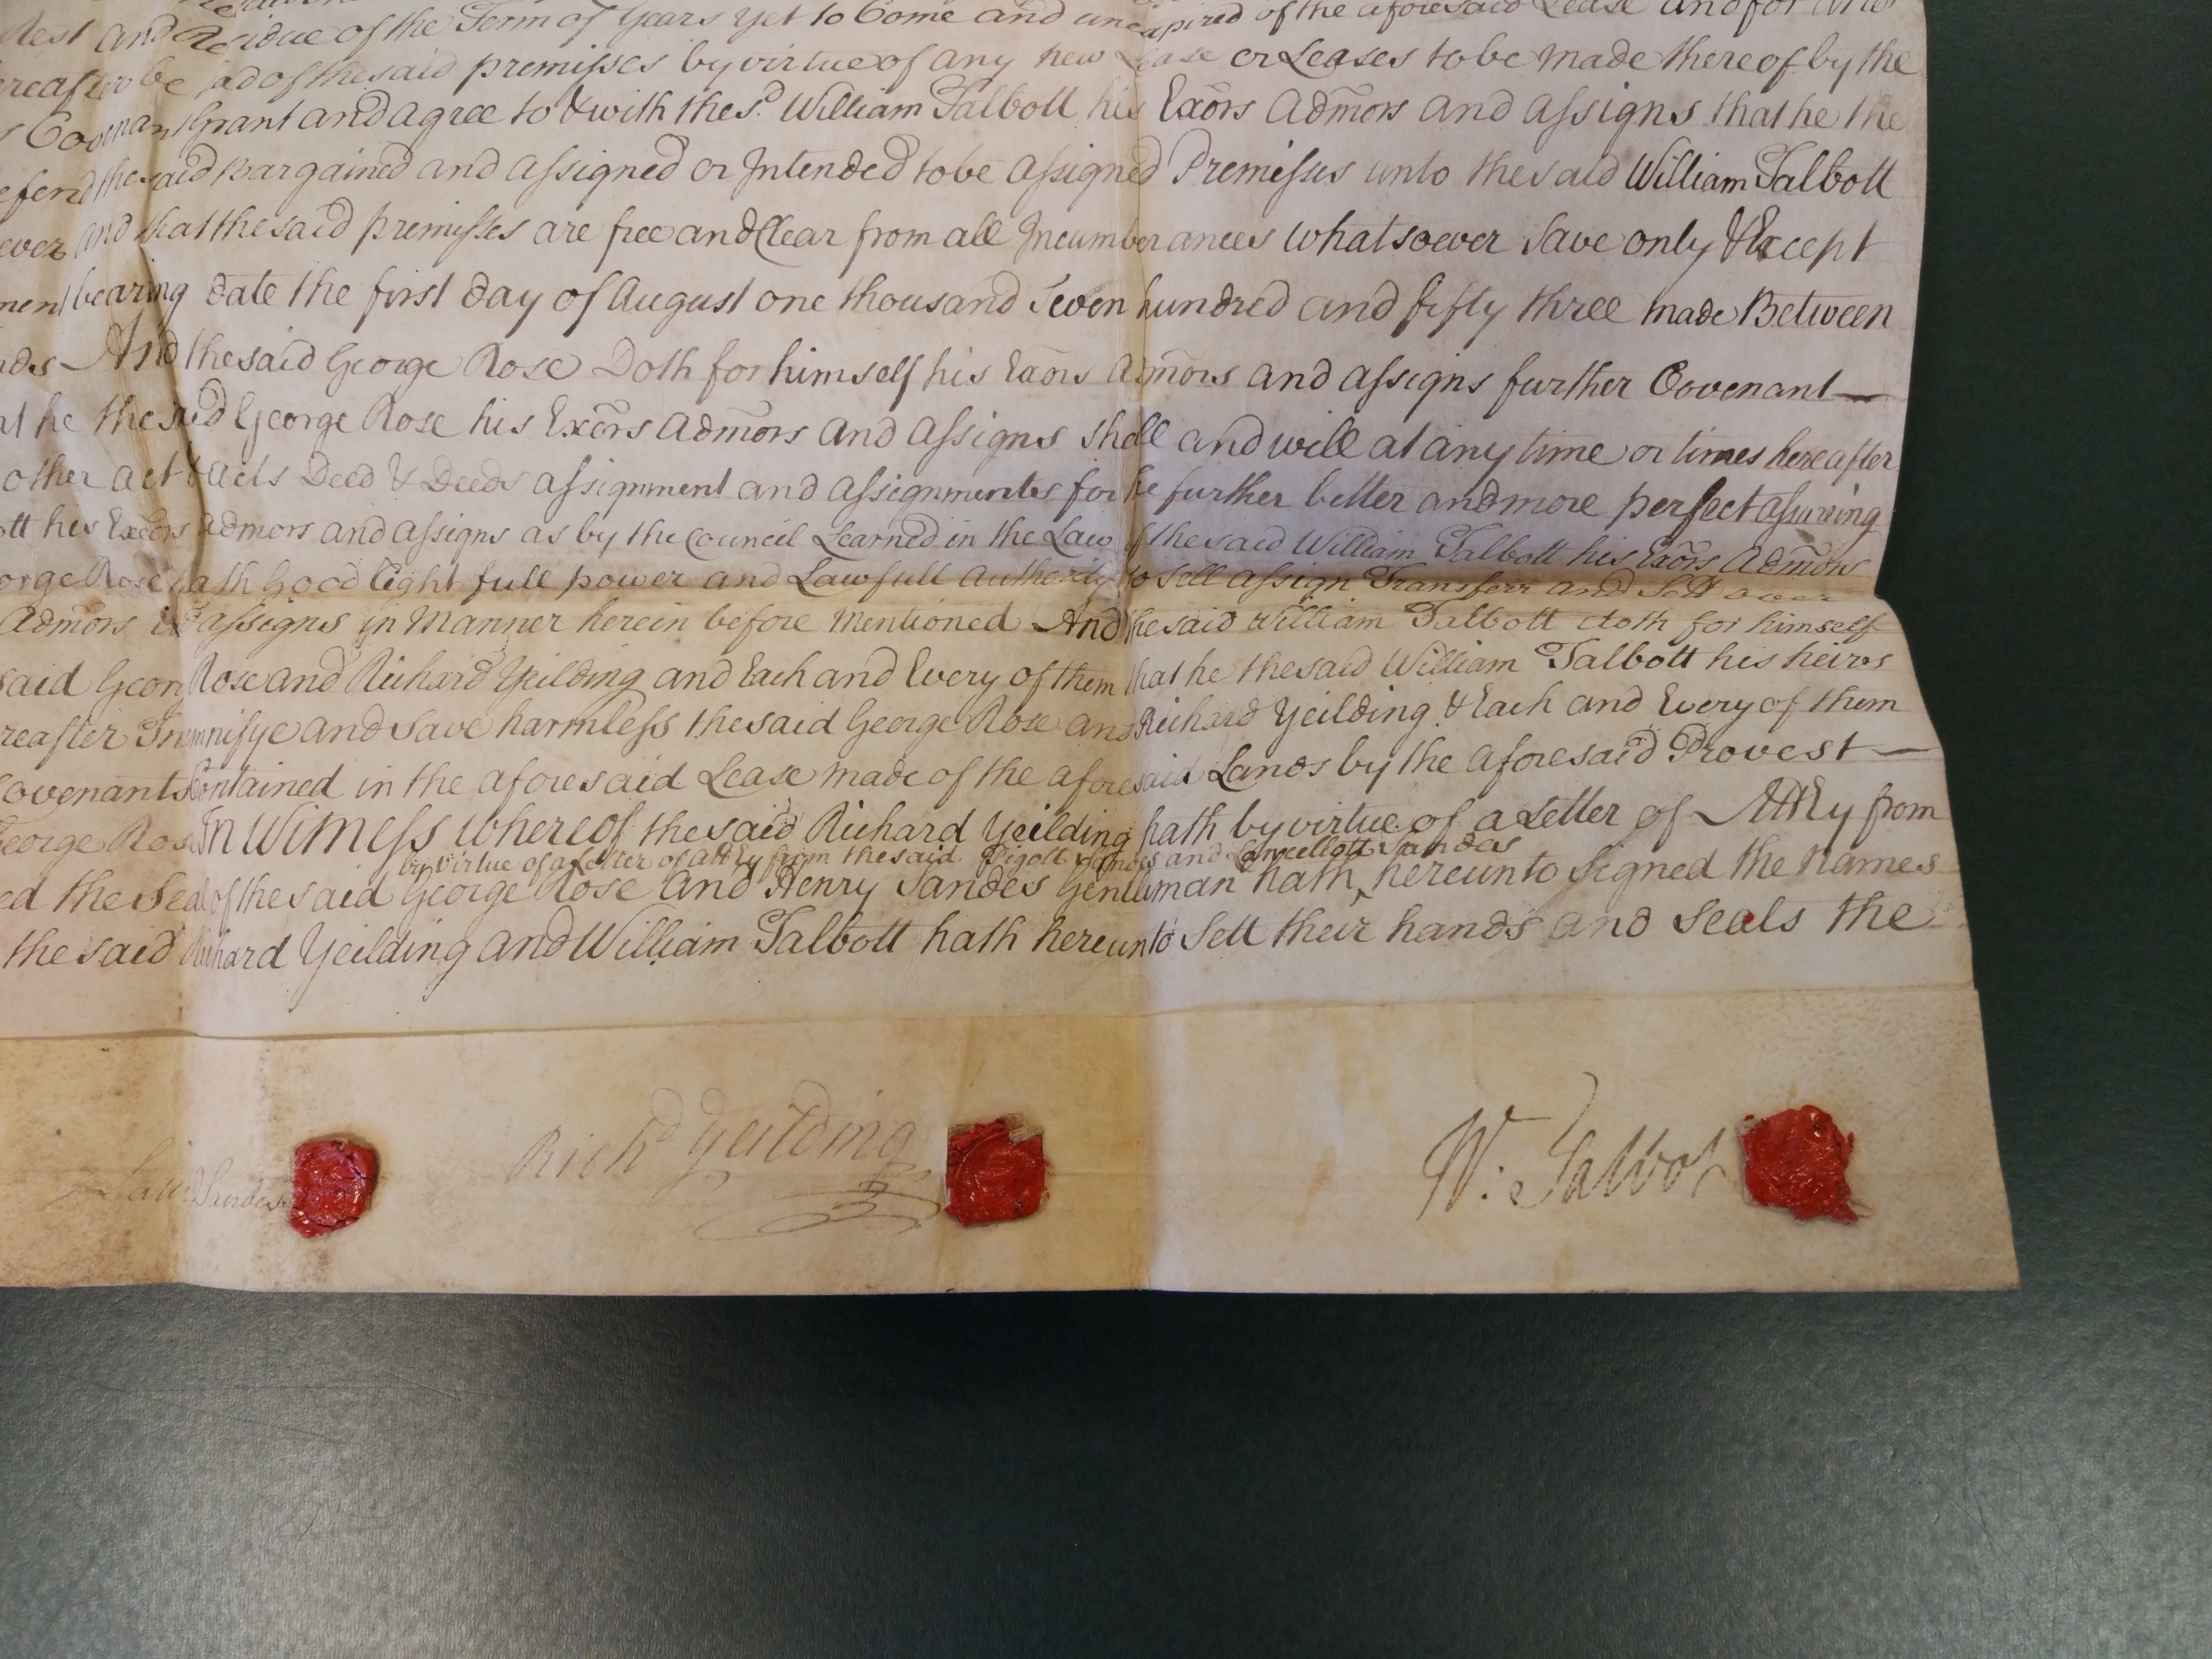 Rest and Residue of the Term of Years yet to Come and unexpired of the aforesaid Lease and for
hereafter be had of the said premisses by virtue of any new Lease or Leases to be made thereof by the
Covenant Grant and agree to & with the s.d William Talbott his Exõrs Adm̃ors and assigns that he the
the said Bargained and assigned or Intended to be assigned Premisses unto the said William Talbott
ever and that the said premisses are free and Clear from all Incumberances whatsoever Save only & Except
ment bearing date the first day of August one thousand Seven hundred and fifty three made Between
And the said George Rose Doth for himself his Exõrs Adm̃ors and assigns further Covenant—
he the said George Rose his Exõrs Adm̃ors and assigns shall and will at any time or times hereafter
other act & acts Deed & Deeds assignment and assignments for the further better and more perfect assureing
ott his Exõrs Admors and assigns as by the Council Learned in the Law of the said William Talbott his Exõrs Adm̃ors
orge Rose hath Good Right full power and Lawfull Authority to Sell assign Transferr and Sett over
Adm̃ors assigns in Manner herein before Mentioned And the said William Talbott doth for himself
said George Rose and Richard Yeilding and Each and Every of them that he the said William Talbott his heires
reafter Indemnifye and Save harmless the said George Rose and Richard Yeilding & Each and Every of them
Covenants Contained in the aforesaid Lease made of the aforesaid Lands by the aforesaid Provest—
George Rose In Witness whereof the said Richard Yeilding hath by virtue of a Letter of Atty from
by virtue of a Letter of Atty from the said Pigott Sandes and Lancellott Sandes
ed the Seal of the said George Rose and Henry Sandes Gentleman hath hereunto Signed the Names
the said Richard Yeilding and William Talbott hath hereunto Sett their hands and Seals the
Sandes
Rich.d Yeilding
W: Talbot